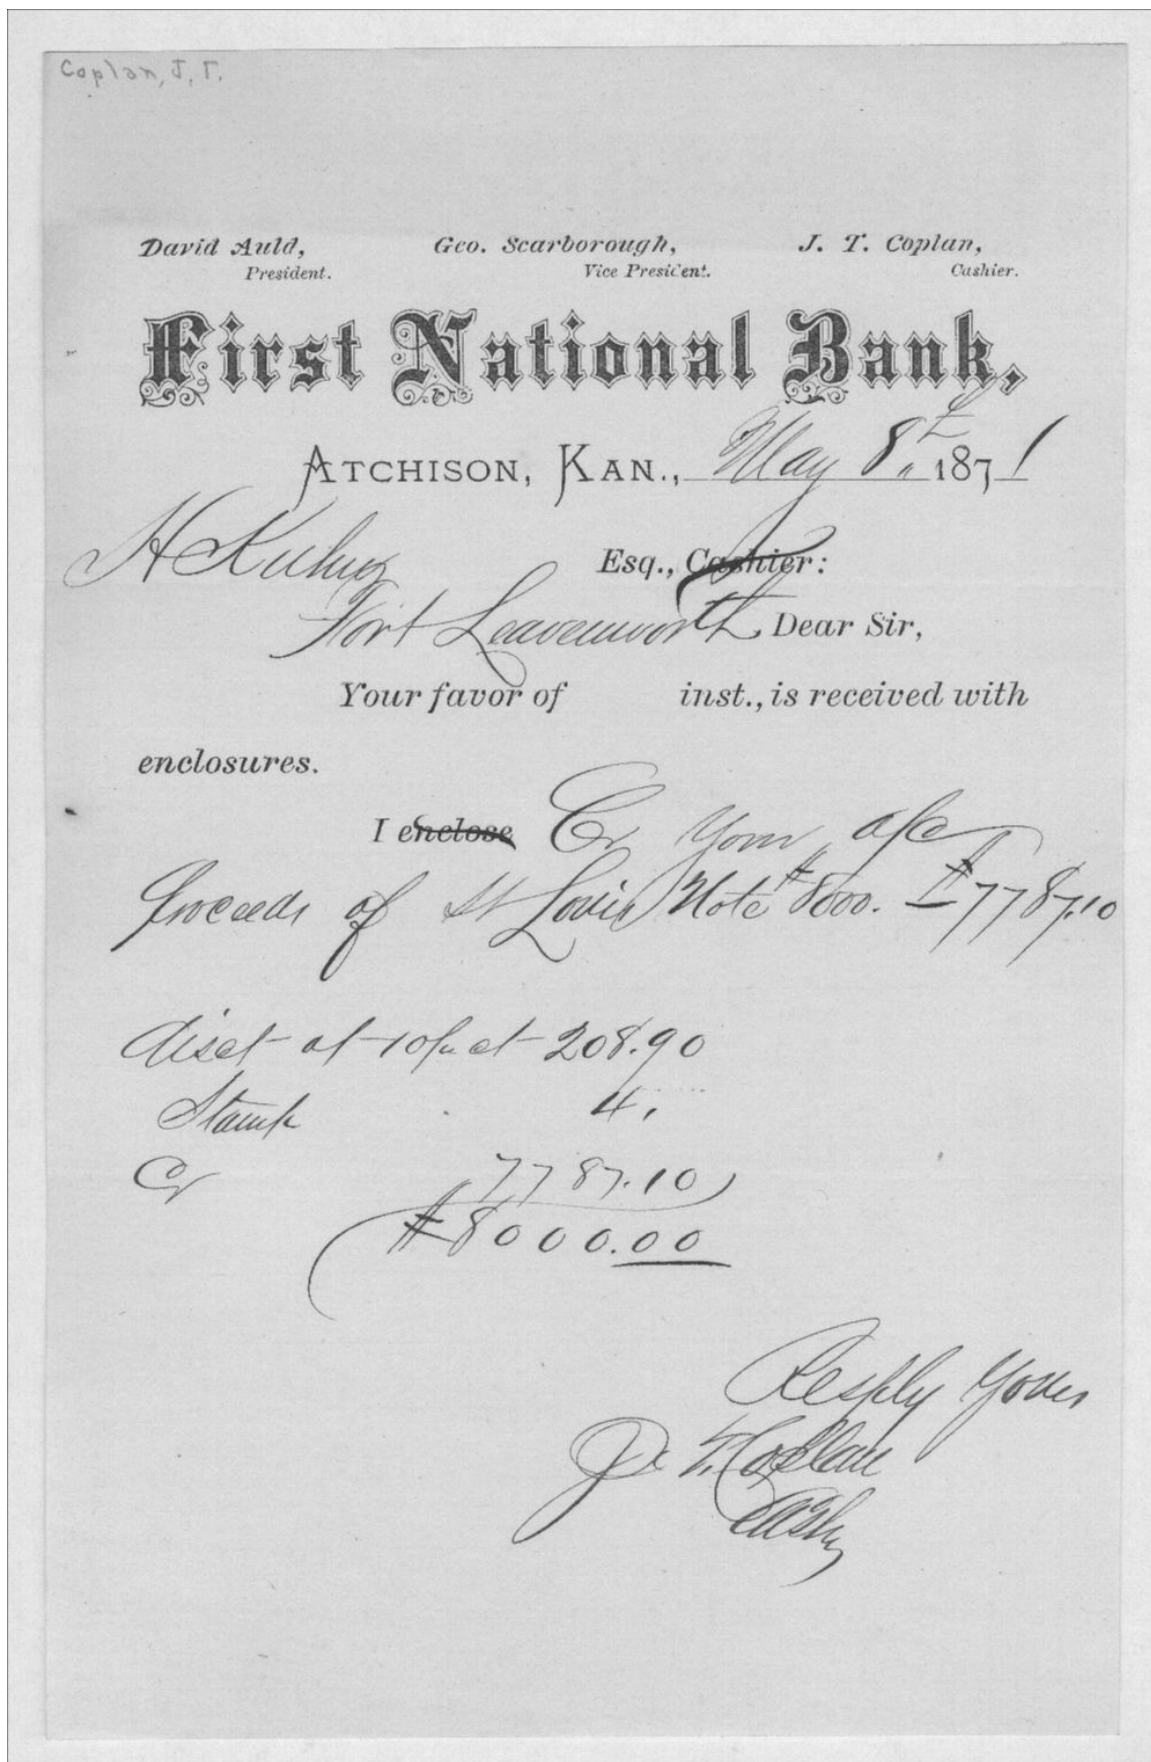 Coplan, J. T.
David Auld, Geo. Scarborough, J. T. Coplan,
President. Vice President. Cashier.
First National Bank,
Atchison, Kan., May 8th, 1871
H Kuhn Esq., Cashier:
Fort Leavenworth Dear Sir,
Your favor of inst., is received with
enclosures.
I enclose Cr Your a/c
Proceeds of St Louis Note $8000. $7787.10
disct at 10 pr ct 208.90
Stamp 4.
Cr 7787.10
$8000.00
Resply Yours
J. T. Coplan
Cash